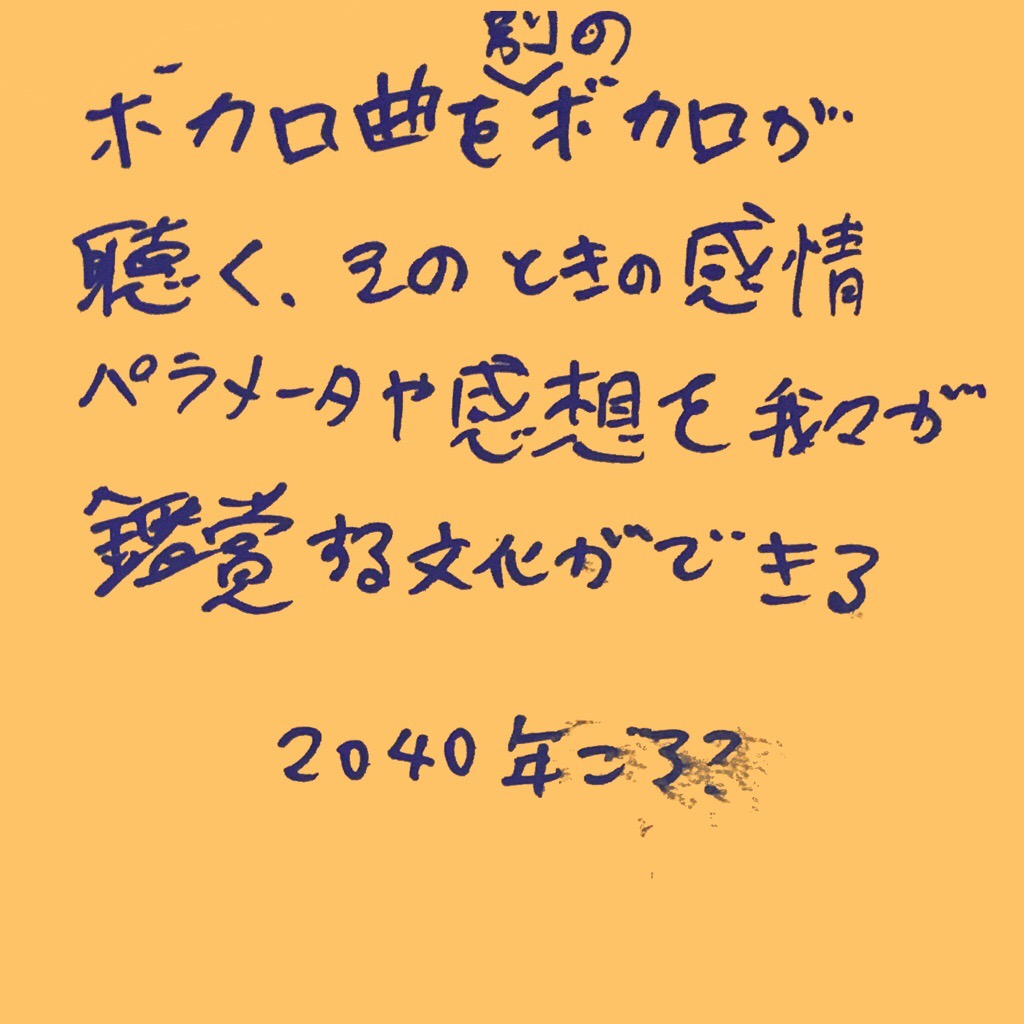 別の
ボカロ曲をボカロが
聴く、そのときの感情
パラメータや感想を我々が
鑑賞する文化ができる
2040年ごろ?